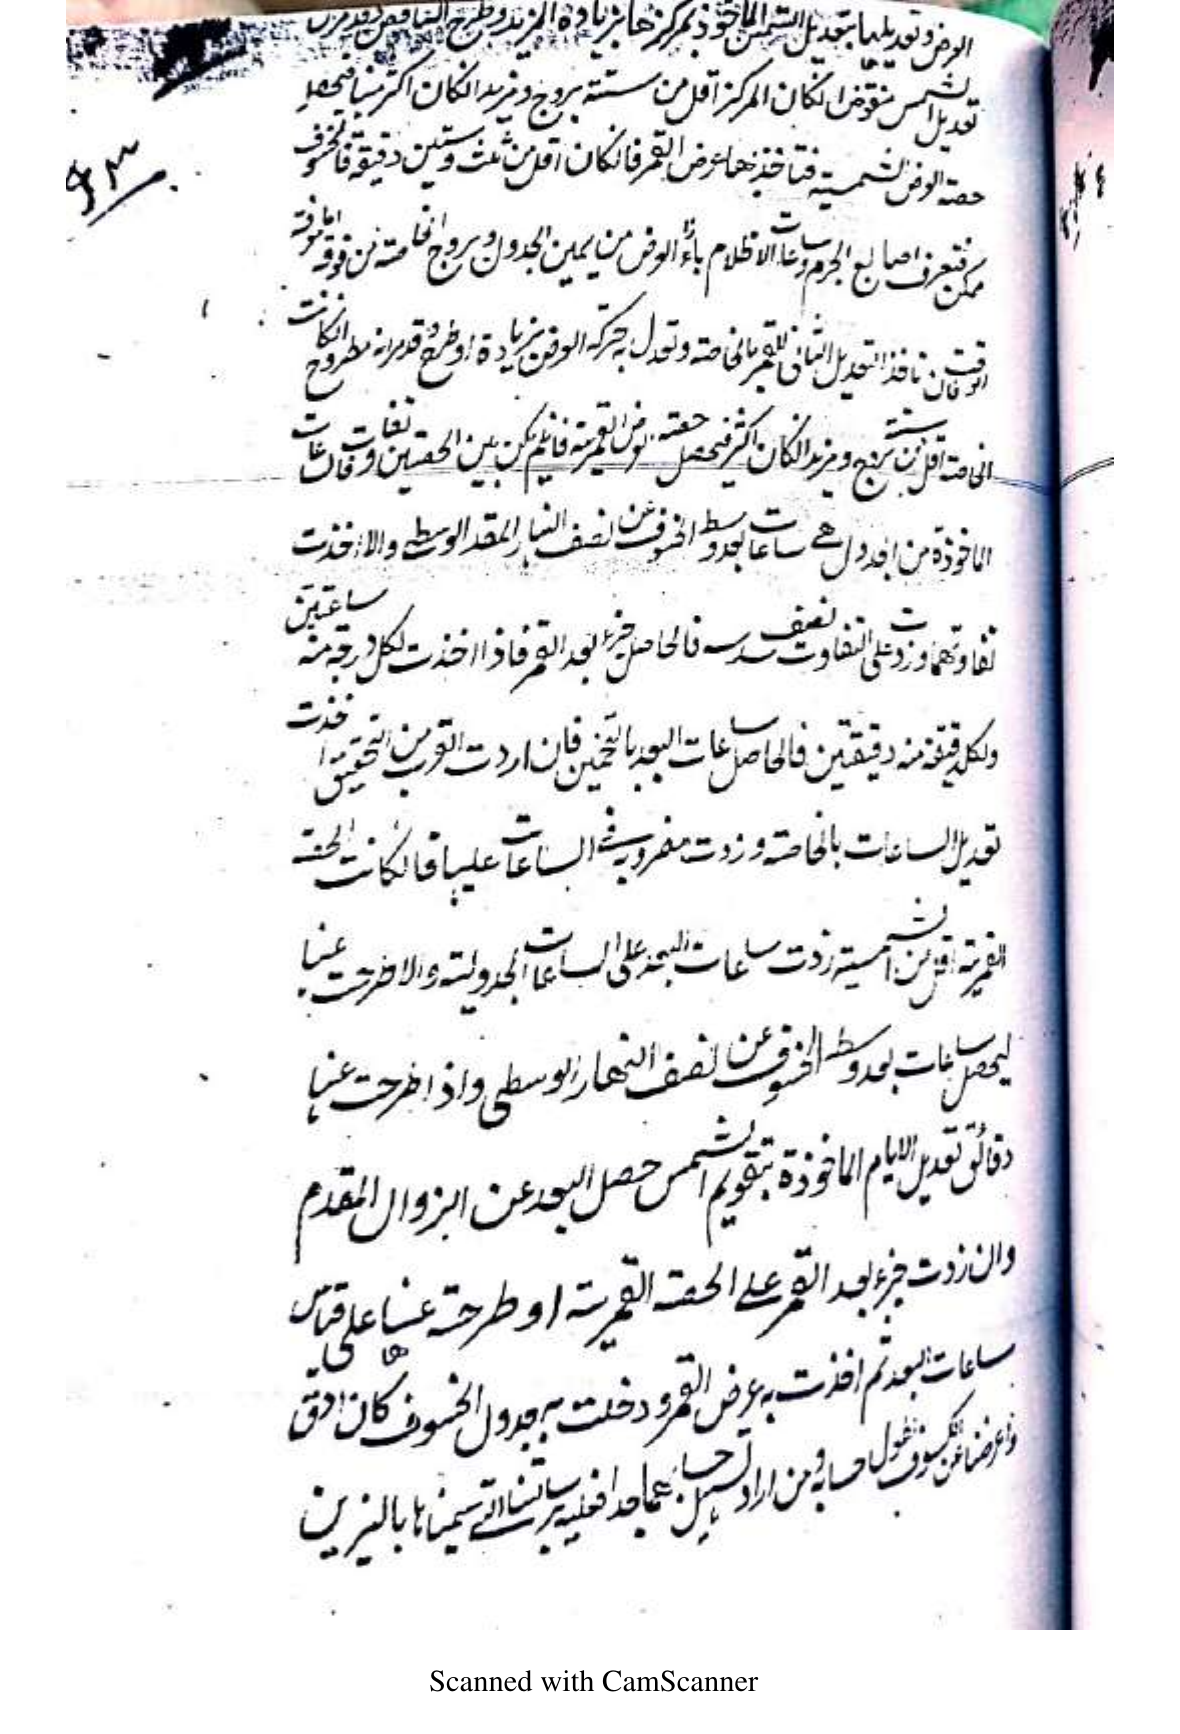 العرض وتعديلها بتعديل الشمس الماخوذ بمركزها بزيادة المزيد وطرح الناقص وقد مر ان
تعديل الشمس منقوص انكان المركز اقل من ستة بروج ومزيد انكان اكثر منها فيحصل
حصة العرض الشمسية فتاخذ بها عرض القمر فانكان اقل من ثلث وستين دقيقة فالخسوف
ممكن فتعرف اصابع الجرم وساعات الاظلام بازاء العرض من يمين الجدول وبروج الخاصة من فوقه
فان تاخذ التعديل الثانى للقمر بالخاصة وتعدل به حركة العرض بزيادة او طرح وقد مر انه مطروح انكانت
الخاصة اقل من ستة بروج ومزيد انكان اكثر فيحصل حصة العرض القمرية فان لم يكن بين الحصتين تفاوت فالساعات
الماخوذة من الجدول هى ساعات بعد وسط الخسوف عن نصف النهار المقدم الوسطى والا اخذت
تفاوتهما وزدت على التفاوت نصف سدسه فالحاصل جزء بعد القمر فاذا اخذت لكل درجة منه ساعتين
ولكل دقيقة منه دقيقتين فالحاصل ساعات البعد بالتخمين فان اردت القرب من التحقيق اخذت
تعديل الساعات بالخاصة وزدت مضروبه فى الساعات عليها فانكانت الحصة
القمرية اقل من الشمسية زدت ساعات البعد على الساعات الجدولية والا طرحت عنها
ليحصل ساعات بعد وسط الخسوف عن نصف النهار الوسطى واذا طرحت عنها
دقائق تعديل الايام الماخوذة بتقويم الشمس حصل البعد عن الزوال المقدم
وان زدت جزء بعد القمر على الحصة القمرية او طرحته عنها على قياس
ساعات البعد ثم اخذت به عرض القمر ودخلت به جدول الخسوف كان ادق
واعرضنا عن الكسوف لطول حسابه ومن اراد تسهيل حسابهما جدا فعليه برسالتنا التى سميناها بالنيرين
Scanned with CamScanner